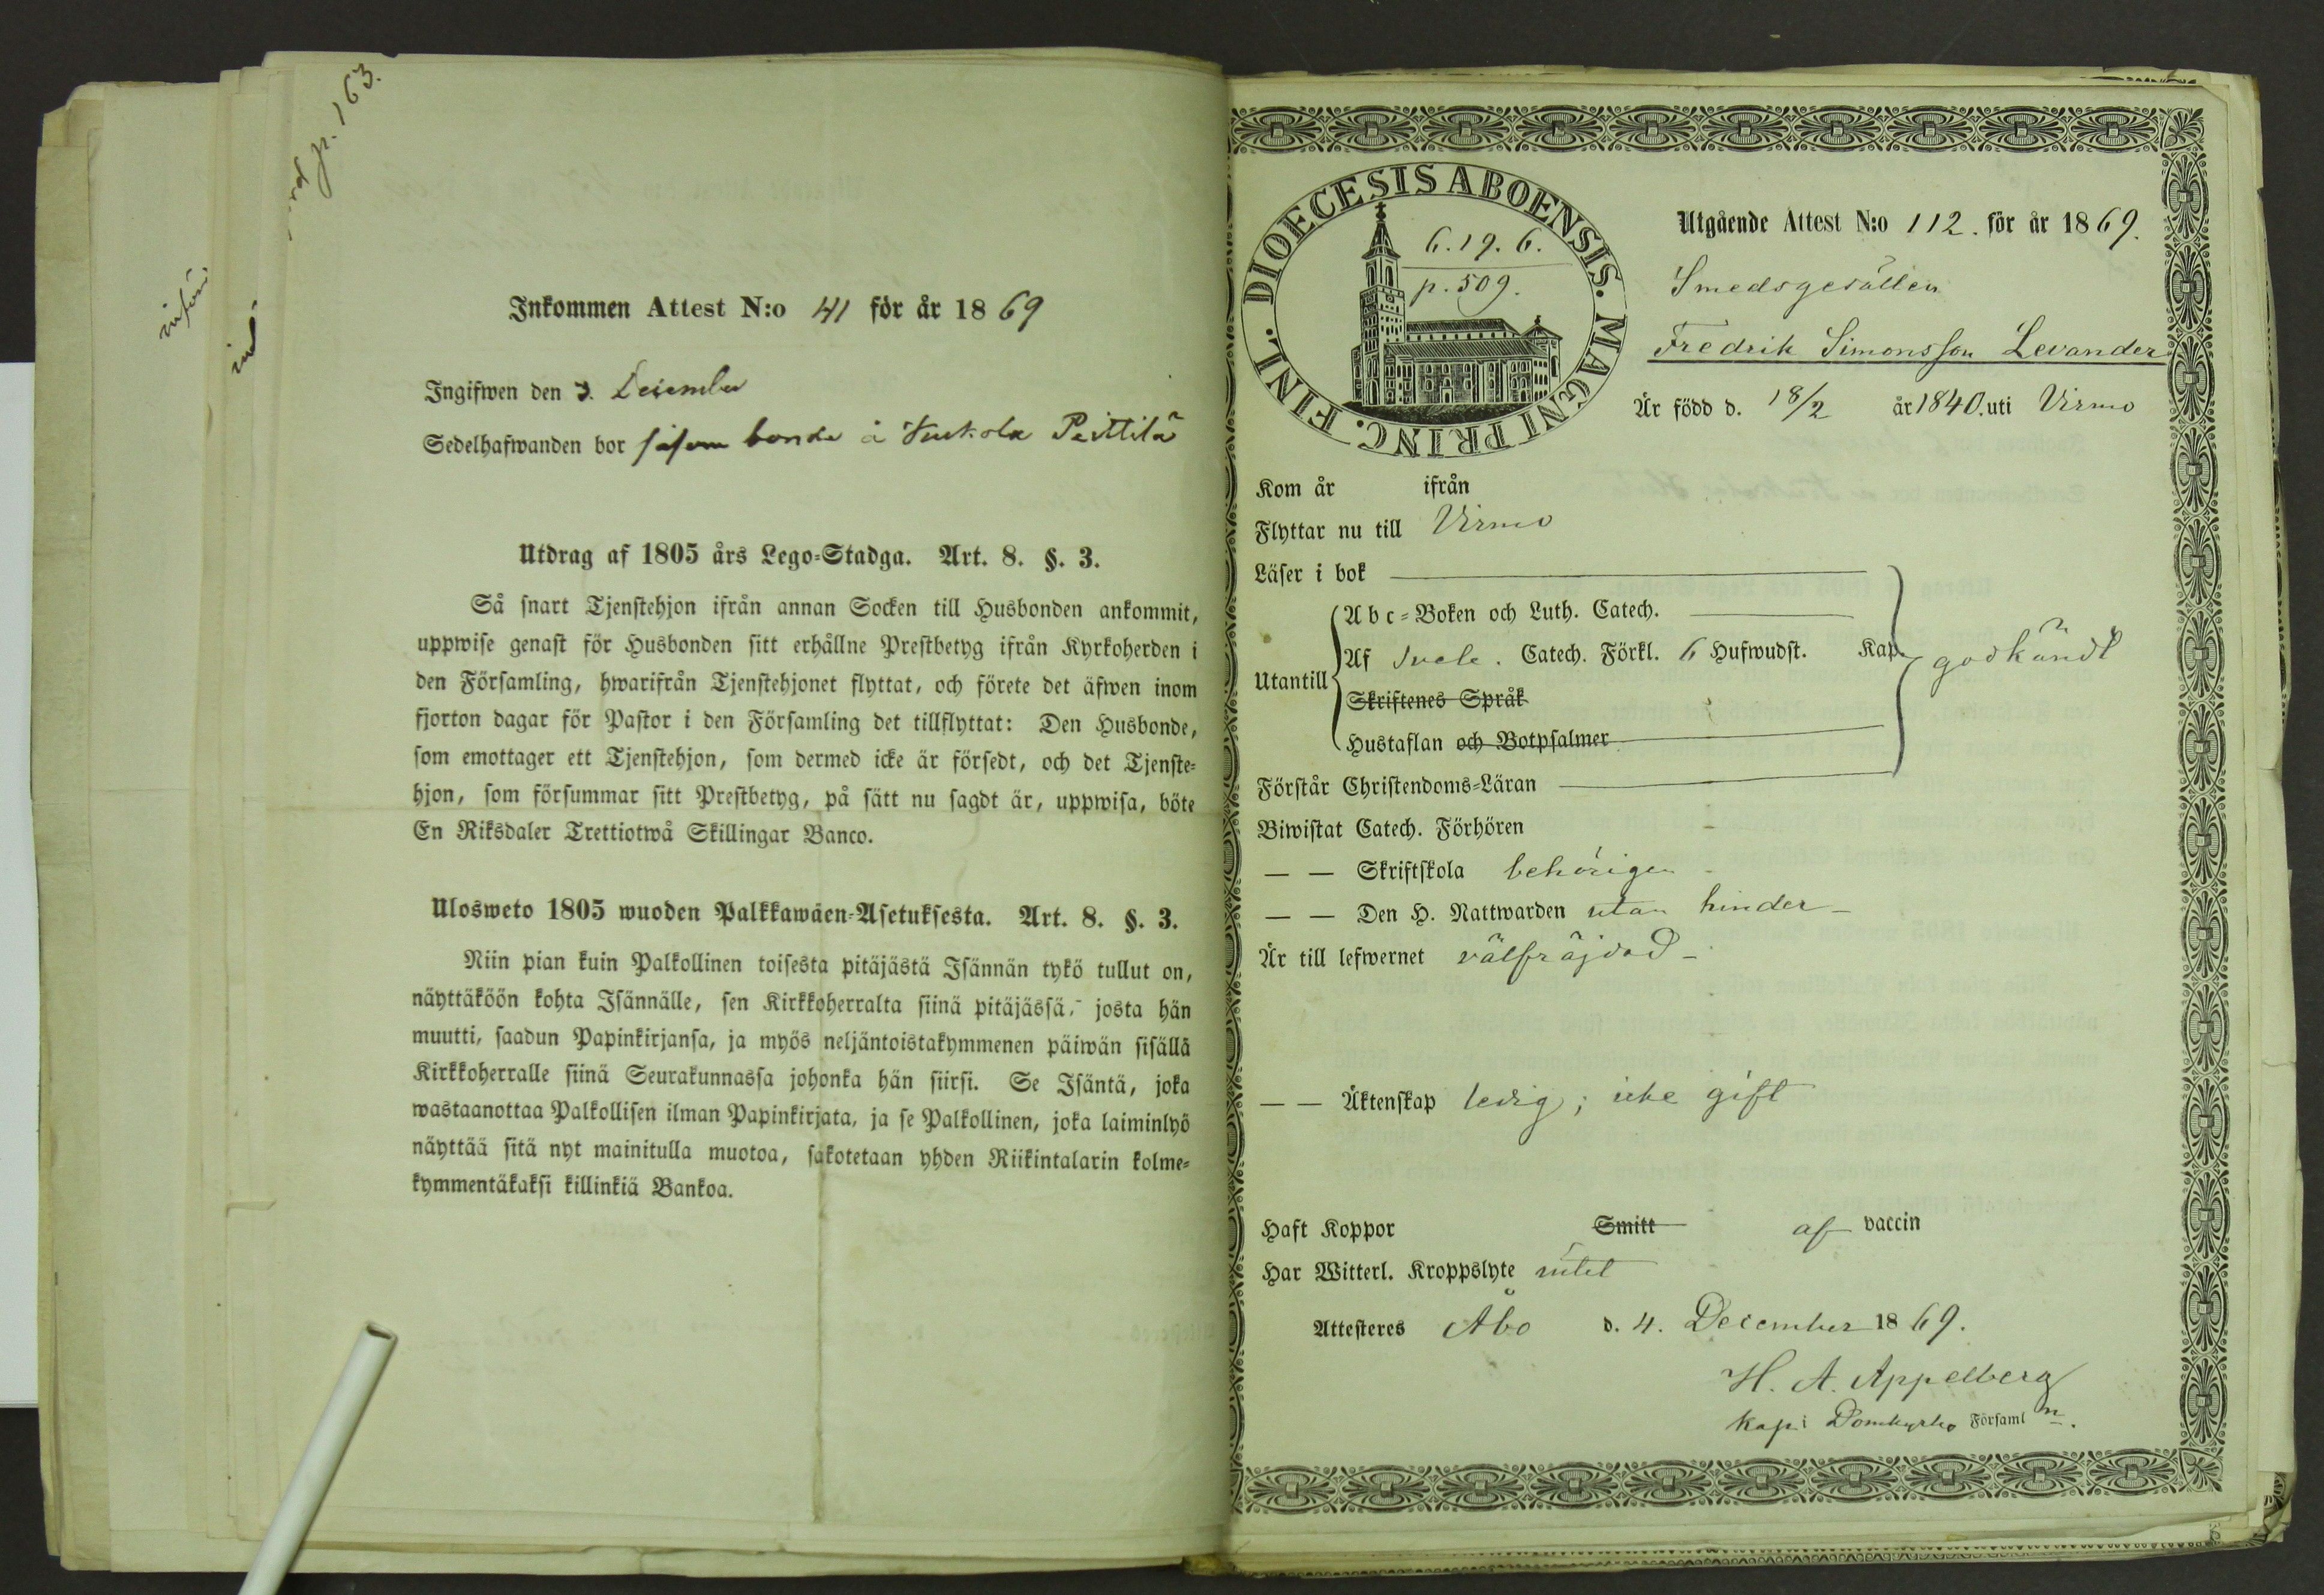 p. 163.
Inkommen Attest N:o 41 för år 1869
Ingifwen den 3. December
Sedelhafwanden bor såsom bonde å Perttilä
Utdrag af 1805 års Lego-Stadga. Art. 8. §. 3.
Så snart Tjenstehjon ifrån annan Socken till Husbonden ankommit,
uppwise genast för Husbonden sitt erhållne Prestbetyg ifrån Kyrkoherden i
den Församling, hwarifrån Tjenstehjonet flyttat, och förete det äfwen inom
fjorton dagar för Pastor i den Församling det tillflyttat: Den Husbonde,
som emottager ett Tjenstehjon, som dermed icke är försedt, och det Tjenste-
hjon, som försummar sitt Prestbetyg, på sätt nu sagdt är, uppwisa, böte
En Riksdaler Trettiotwå Skillingar Banco.
Ulosweto 1805 wuoden Palkkawäen-Asetuksesta. Art. 8. §. 3.
Niin pian kuin Palkollinen toisesta pitäjästä Isännän tykö tullut on,
näyttäköön kohta Isännälle, sen Kirkkoherralta siinä pitäjässä, josta hän
muutti, saadun Papinkirjansa, ja myös neljäntoistakymmenen päiwän sisällä
Kirkkoherralle siinä Seurakunnassa johonka hän siirsi. Se Isäntä, joka
wastaanottaa Palkollisen ilman Papinkirjata, ja se Palkollinen, joka laiminlyö
näyttää sitä nyt mainitulla muotoa, sakotetaan yhden Riikintalarin kolme-
kymmentäkaksi killinkiä Bankoa.
DIOECESIS ABOENSIS. MAGNI PRINC. FINL.
6.19.6.
p. 509.
Utgående Attest N:o 112. för år 1869.
Smedsgesällen
Fredrik Simonsson Levander
Är född d. 18/2 år 1840. uti Virmo
Kom år ifrån
Flyttar nu till Virmo
Läser i bok
Utantill
Abc-Boken och Luth. Catech.
Af Svele. Catech. Förkl. 6 Hufwudst. Kap. godkändt
Skriftenes Språk
Hustaflan och Botpsalmer
Förstår Christendoms-Läran
Biwistat Catech. Förhören
— — Skriftskola behörigen
— — Den H. Nattwarden utan hinder
Är till lefwernet välfräjdad
— — Äktenskap ledig; icke gift
Haft Koppor Smitt af vaccin
Har Witterl. Kroppslyte intet
Attesteres Åbo d. 4. December 1869.
H. A. Appelberg
Kap. i Domkyrko Församl n.